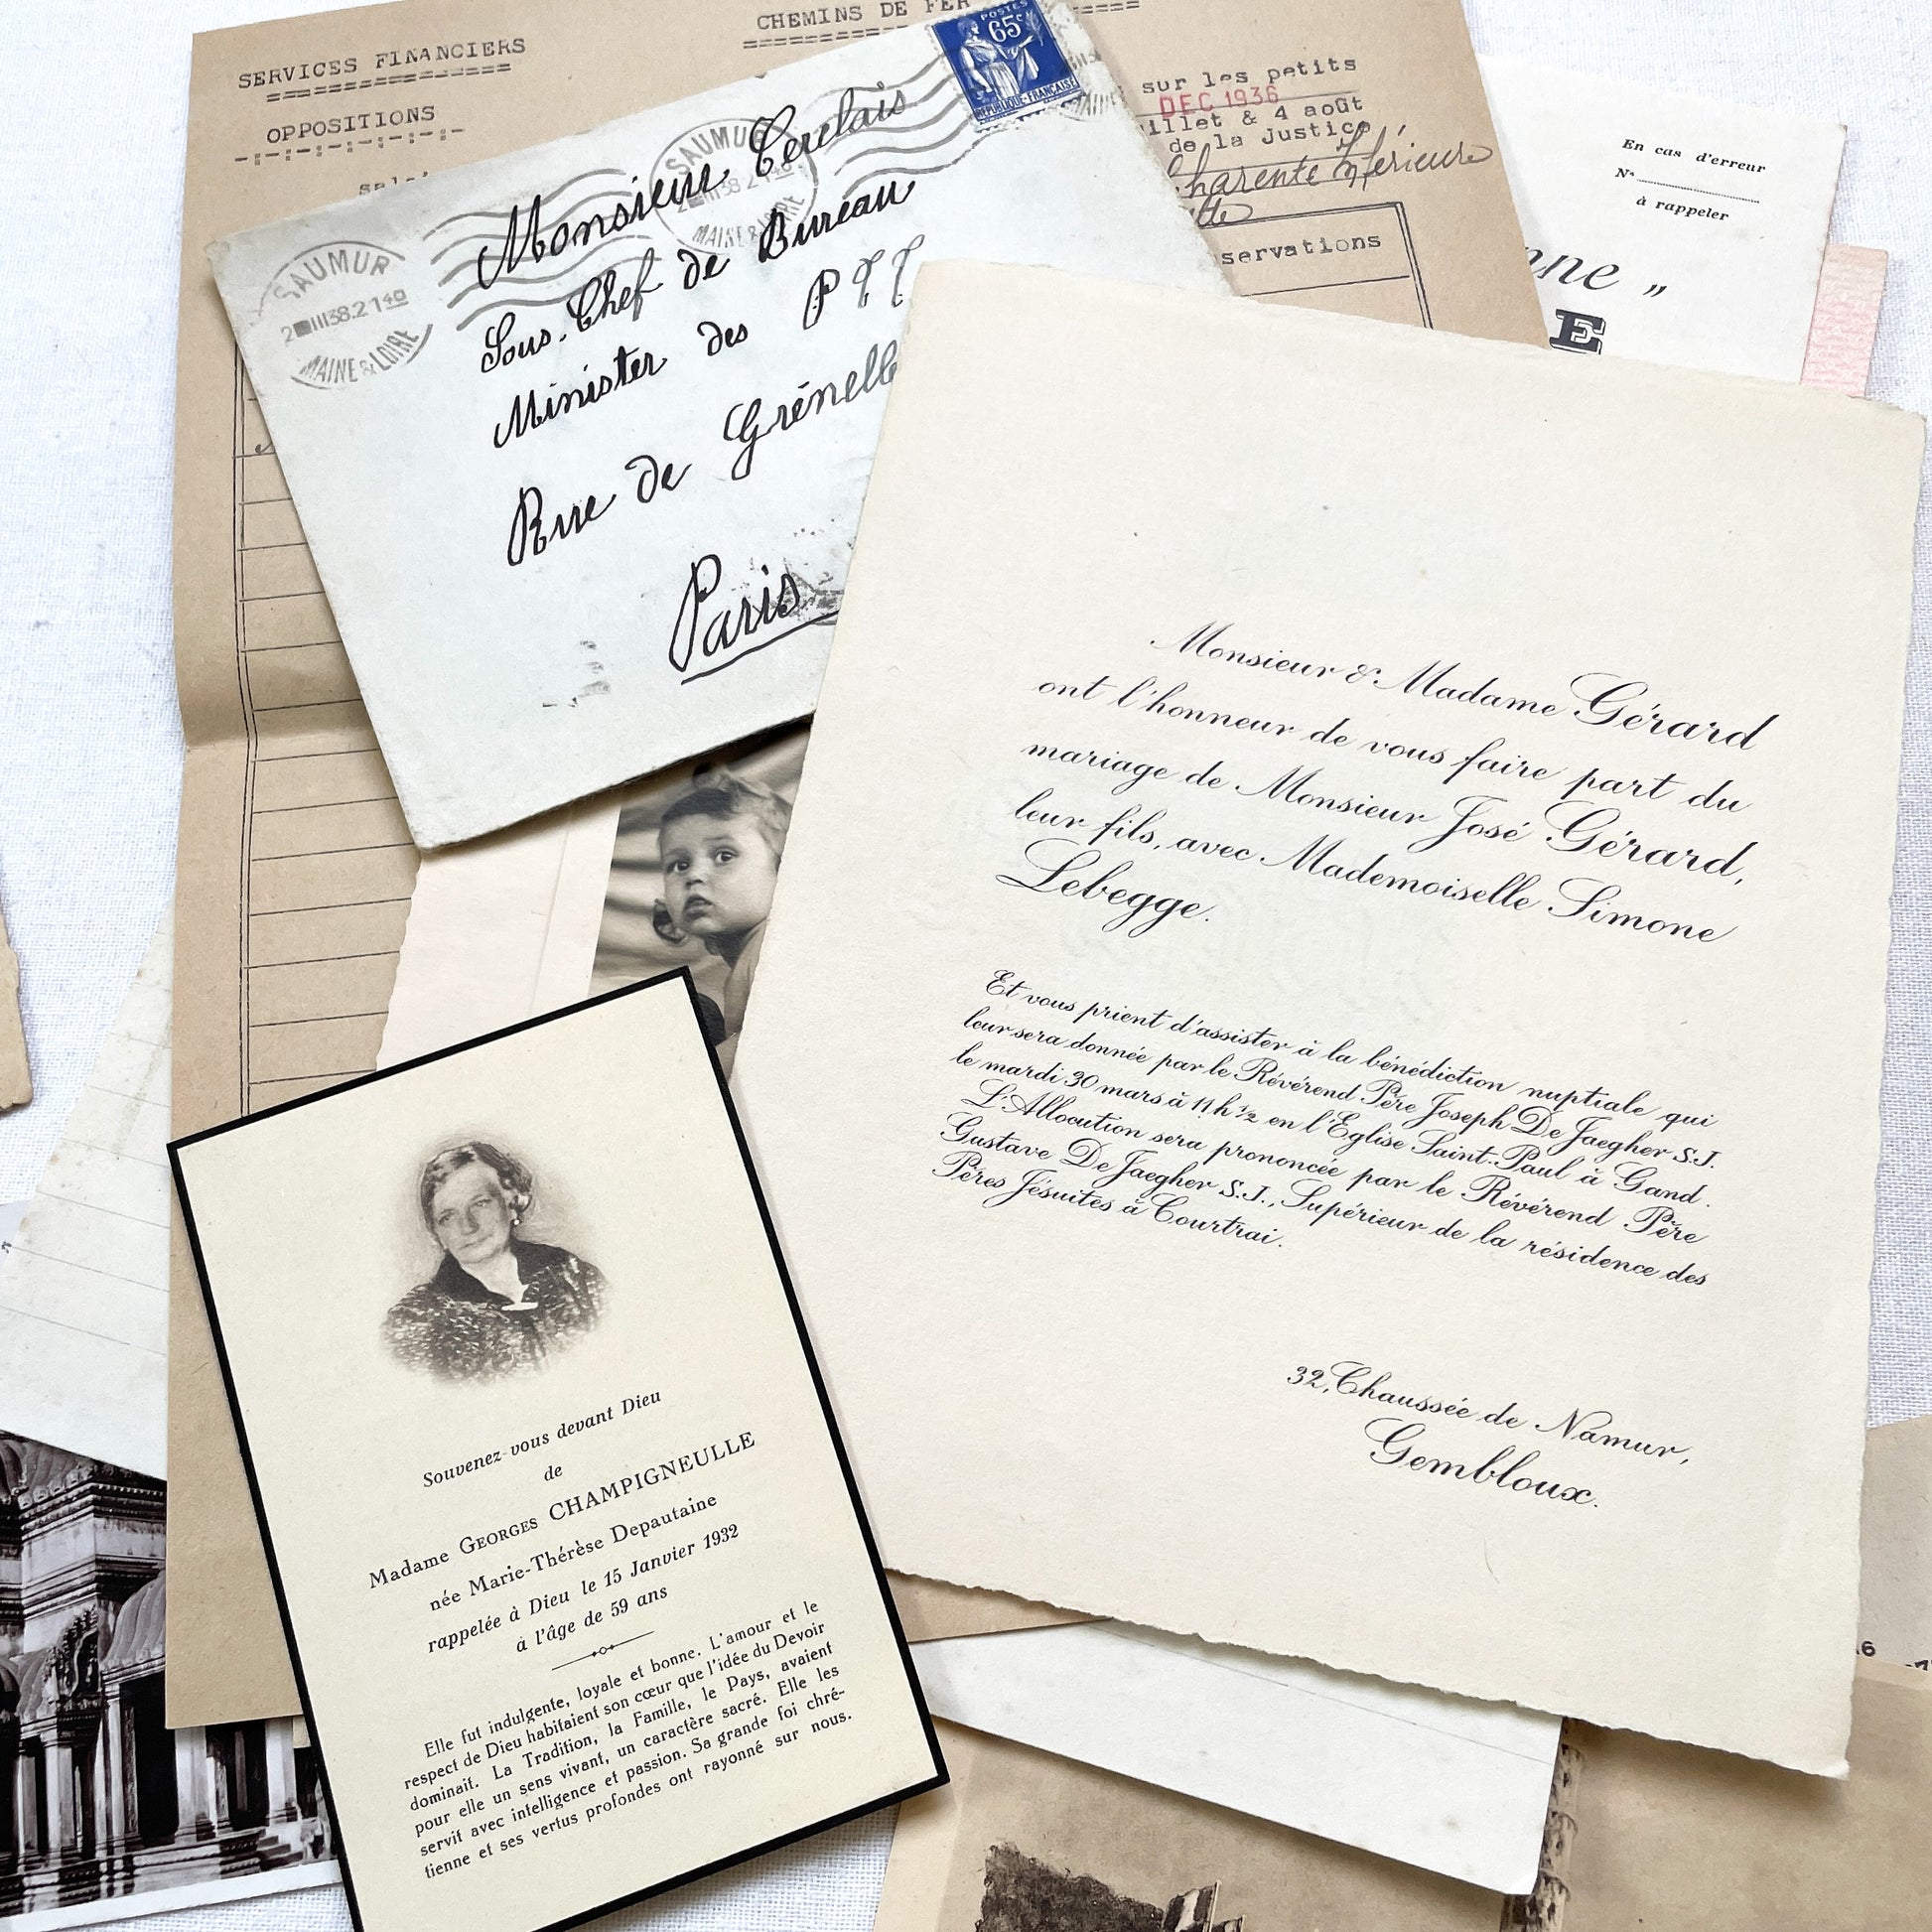 SERVICES FINANCIERS
OPPOSITIONS
CHEMINS DE FER
sur les petits
DEC 1936
illet & 4 août
de la Justice
Charente Inférieure
servations
En cas d'erreur
N°
à rappeler
nne „
E
POSTES
65c
REPUBLIQUE FRANÇAISE
SAUMUR
MAINE & LOIRE
SAUMUR
MAINE & LOIRE
Monsieur Cerelais
Sous-Chef de Bureau
Minister des PTT
Rue de Grénelle
Paris
Monsieur & Madame Gérard
ont l'honneur de vous faire part du
mariage de Monsieur José Gérard,
leur fils, avec Mademoiselle Simone
Lebegge.
Et vous prient d'assister à la bénédiction nuptiale qui
leur sera donnée par le Révérend Père Joseph De Jaegher S.J.
le mardi 30 mars à 11 h ½ en l'Eglise Saint-Paul à Gand.
L'Allocution sera prononcée par le Révérend Père
Gustave De Jaegher S.J., Supérieur de la résidence des
Pères Jésuites à Courtrai.
32, Chaussée de Namur,
Gembloux.
Souvenez-vous devant Dieu
de
Madame GEORGES CHAMPIGNEULLE
née Marie-Thérèse Depautaine
rappelée à Dieu le 15 Janvier 1932
à l'âge de 59 ans
Elle fut indulgente, loyale et bonne. L'amour et le
respect de Dieu habitaient son cœur que l'idée du Devoir
dominait. La Tradition, la Famille, le Pays, avaient
pour elle un sens vivant, un caractère sacré. Elle les
servit avec intelligence et passion. Sa grande foi chré-
tienne et ses vertus profondes ont rayonné sur nous.